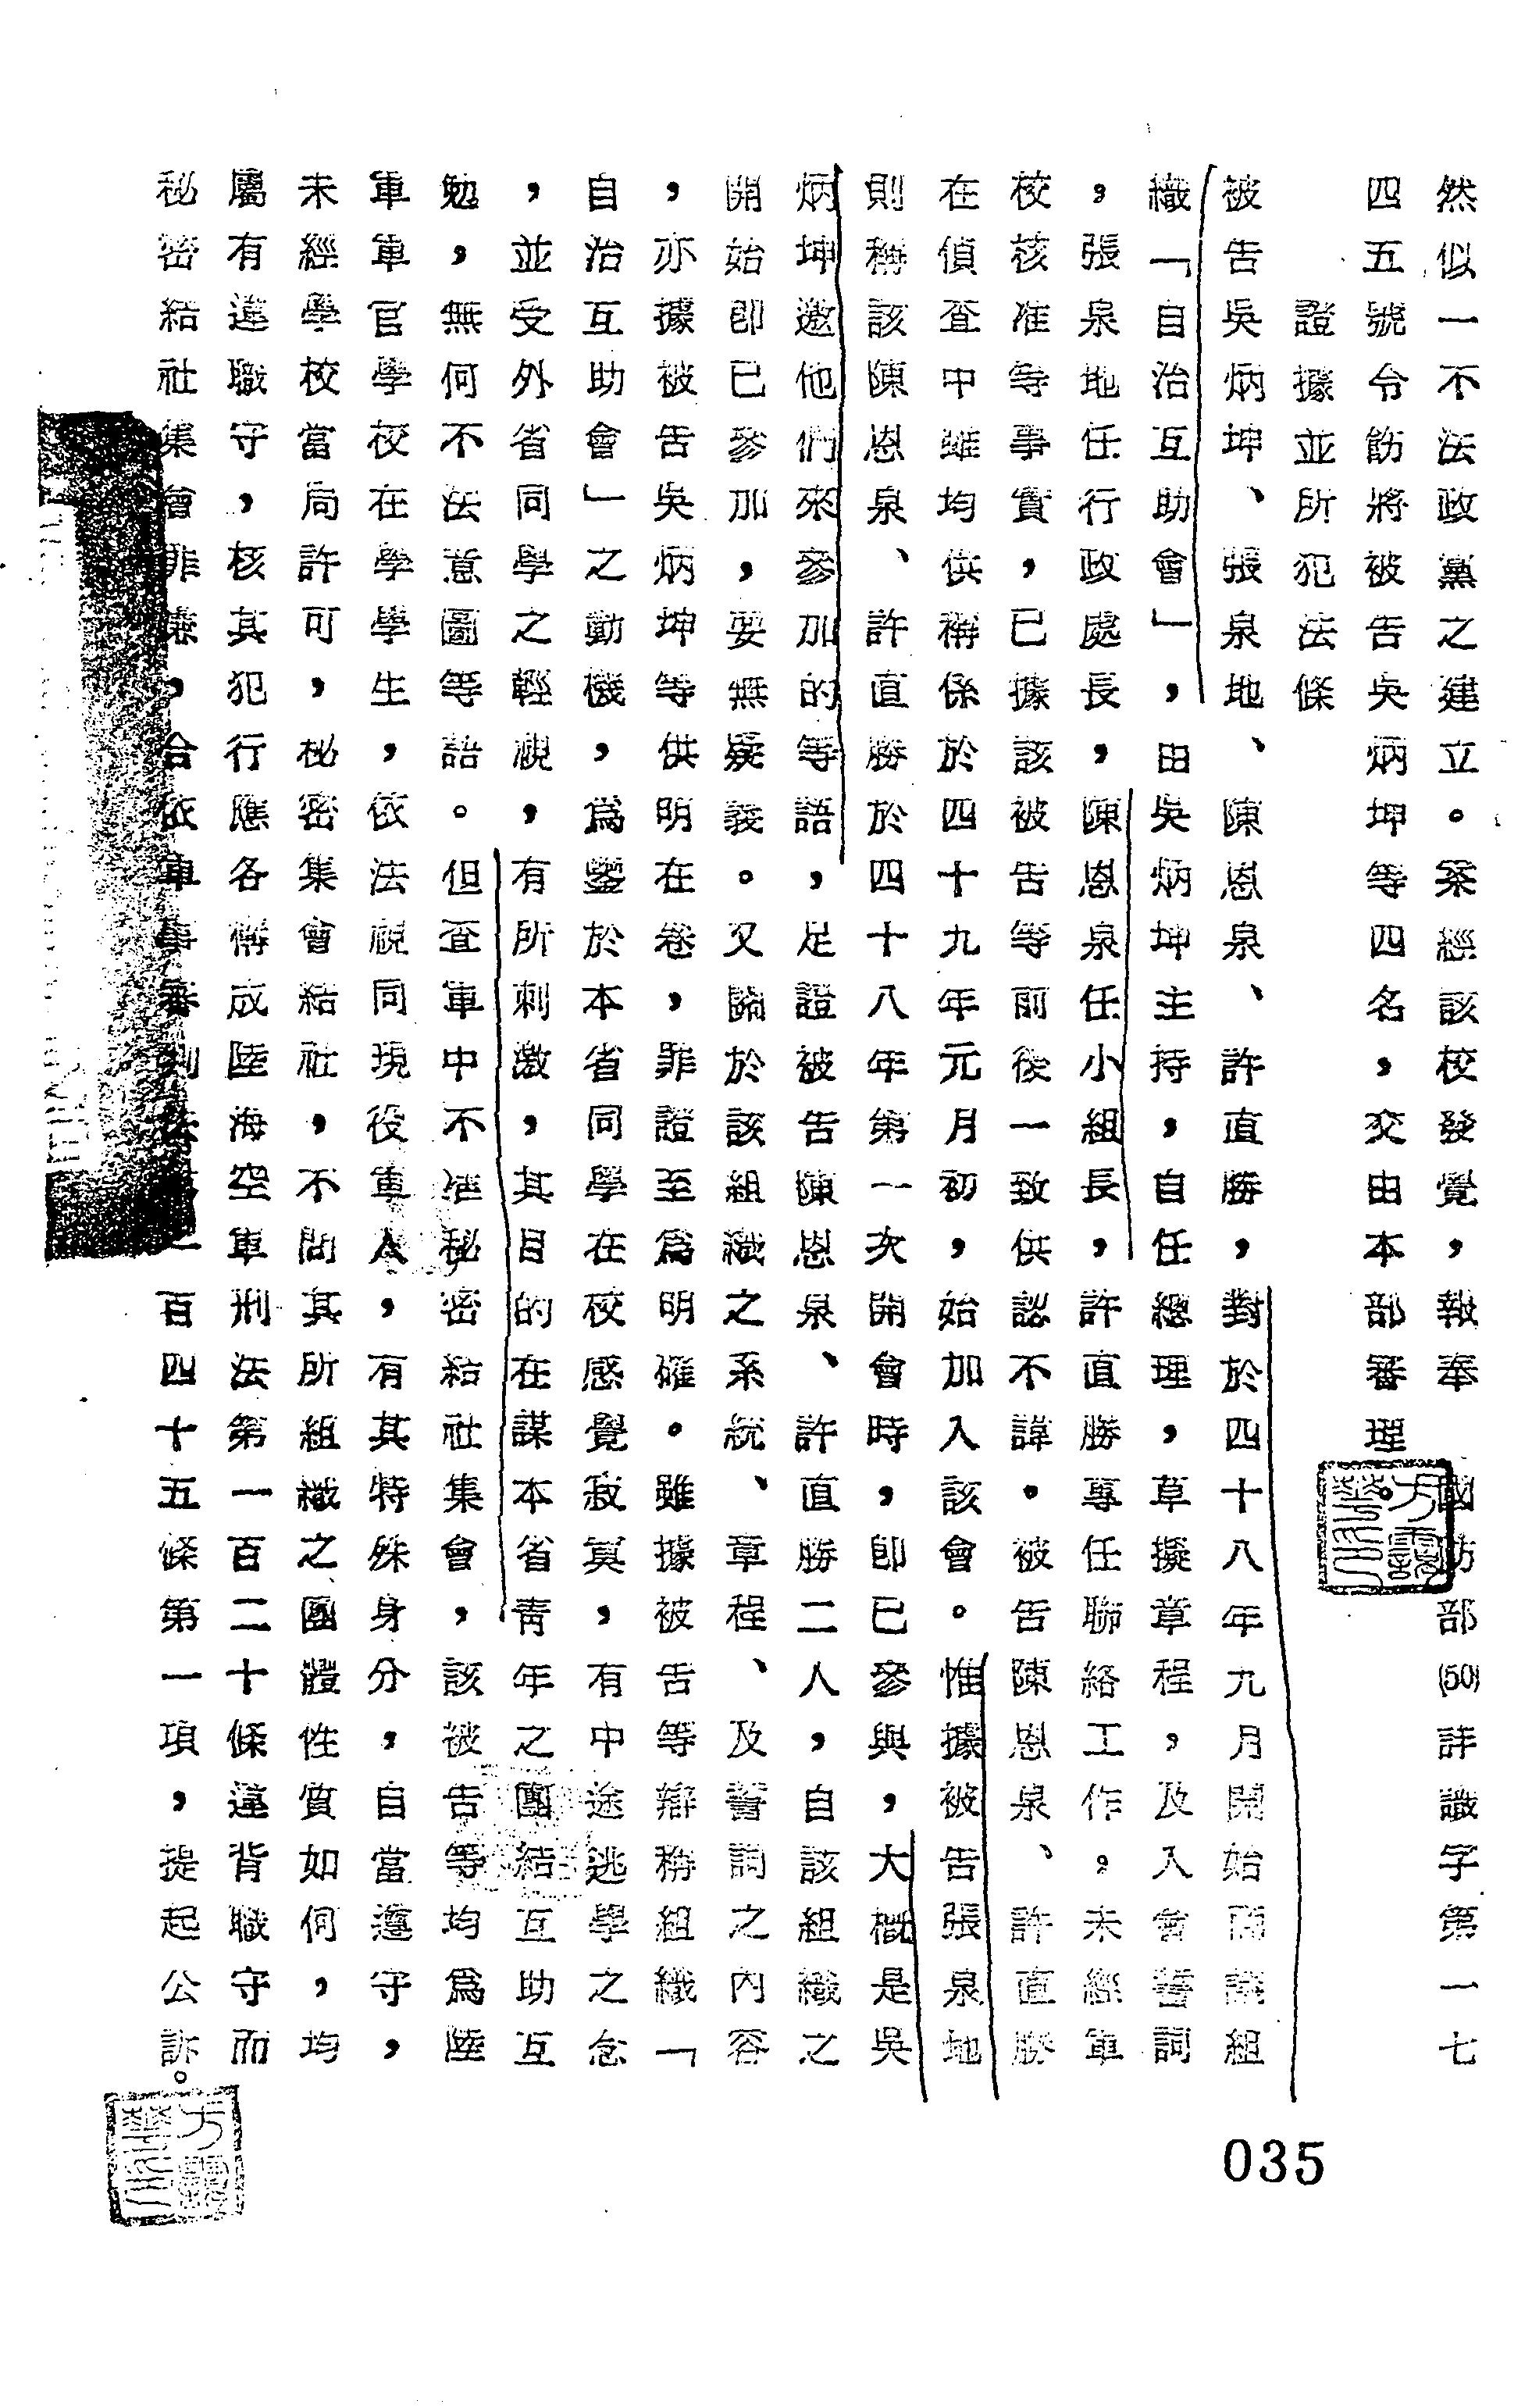 然似一不法政黨之建立。案經該校發覺,報奉 國防部(50)評識字第一七
四五號令飭將被告吳炳坤等四名,交由本部審理。
證據並所犯法條
被告吳炳坤、張泉地、陳恩泉、許直勝,對於四十八年九月開始商議組
織「自治互助會」,由吳炳坤主持,自任總理,草擬章程,及入會誓詞
,張泉地任行政處長,陳恩泉任小組長,許直勝專任聯絡工作。未經軍
校核准等事實,已據該被告等前後一致供認不諱。被告陳恩泉、許直勝
在偵查中雖均供稱係於四十九年元月初,始加入該會。惟據被告張泉地
則稱該陳恩泉、許直勝於四十八年第一次開會時,即已參與,大概是吳
炳坤邀他們來參加的等語,足證被告陳恩泉、許直勝二人,自該組織之
開始即已參加,要無疑義。又關於該組織之系統、章程、及誓詞之內容
,亦據被告吳炳坤等供明在卷,罪證至為明確。雖據被告等辯稱組織「
自治互助會」之動機,為鑒於本省同學在校感覺寂寞,有中途逃學之念
,並受外省同學之輕視,有所刺激,其目的在謀本省青年之團結互助互
勉,無何不法意圖等語。但查軍中不准秘密結社集會,該被告等均為陸
軍軍官學校在學學生,依法視同現役軍人,有其特殊身分,自當遵守,
未經學校當局許可,秘密集會結社,不問其所組織之團體性質如何,均
屬有違職守,核其犯行應各構成陸海空軍刑法第一百二十條違背職守而
秘密結社集會罪嫌,合依軍事審判法第一百四十五條第一項,提起公訴。
035